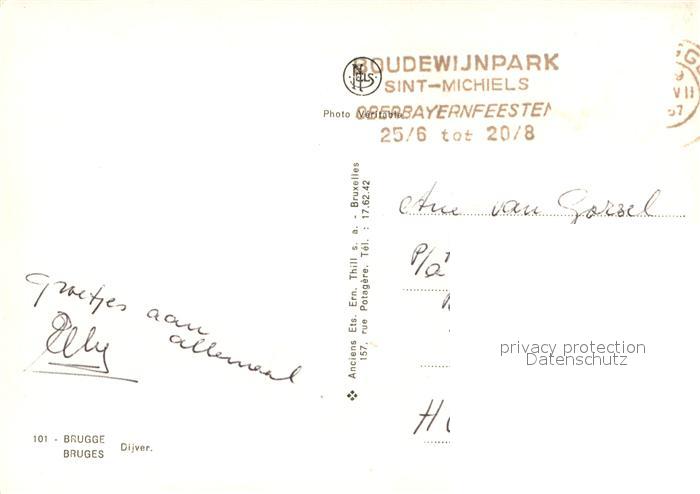 BOUDEWIJNPARK
SINT-MICHIELS
OBERBAYERNFEESTEN
25/6 tot 20/8
NELS
Photo Véritable
VII
67
Anciens Ets. Ern. Thill s. a. - Bruxelles
157, rue Potagère. Tél. : 17.62.42
van Gorsel
P/a
privacy protection
Datenschutz
Groetjes aan
allemaal
Elly
101 - BRUGGE
BRUGES
Dijver.